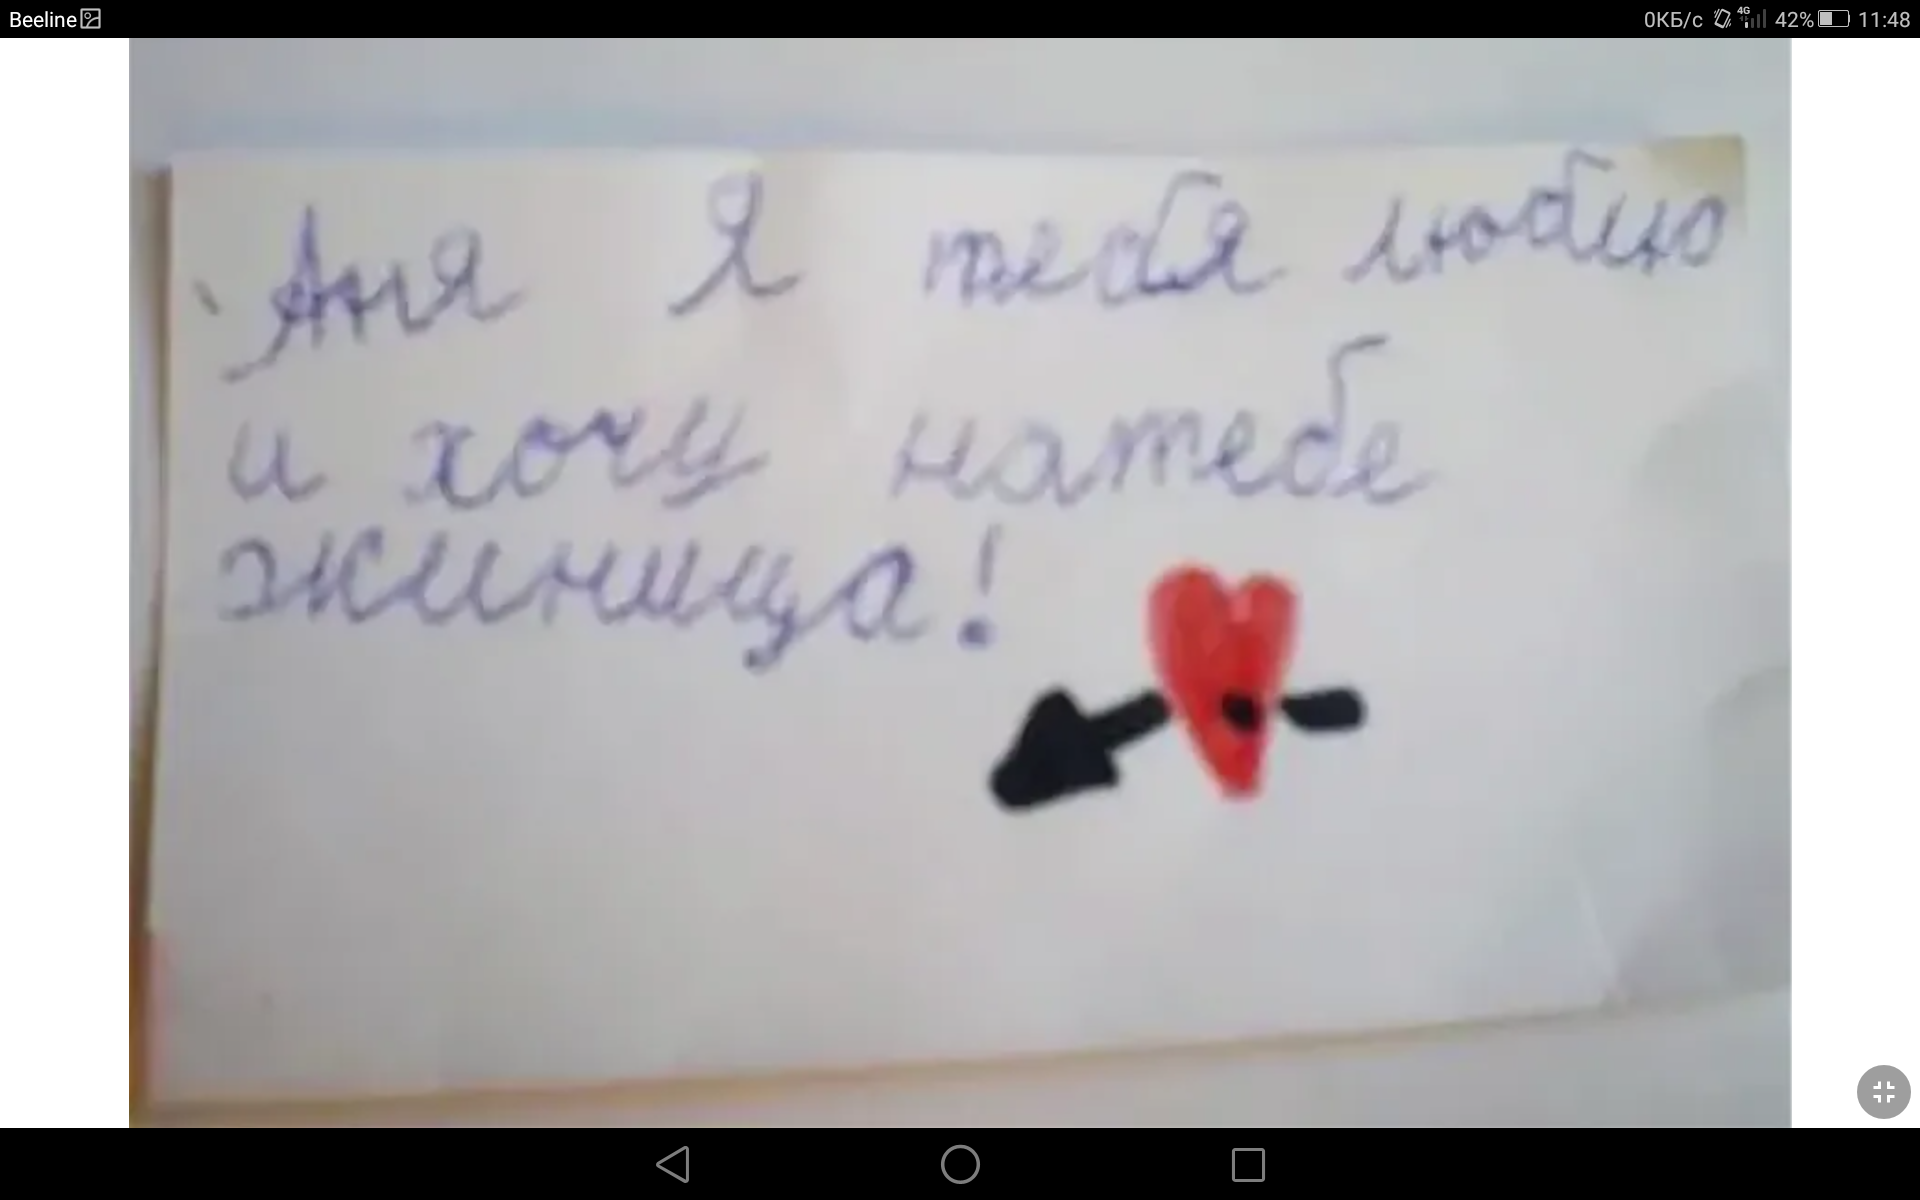 Beeline 0КБ/с 4G 42% 11:48
Аня Я тебя люблю
и хочу натебе
жиница!